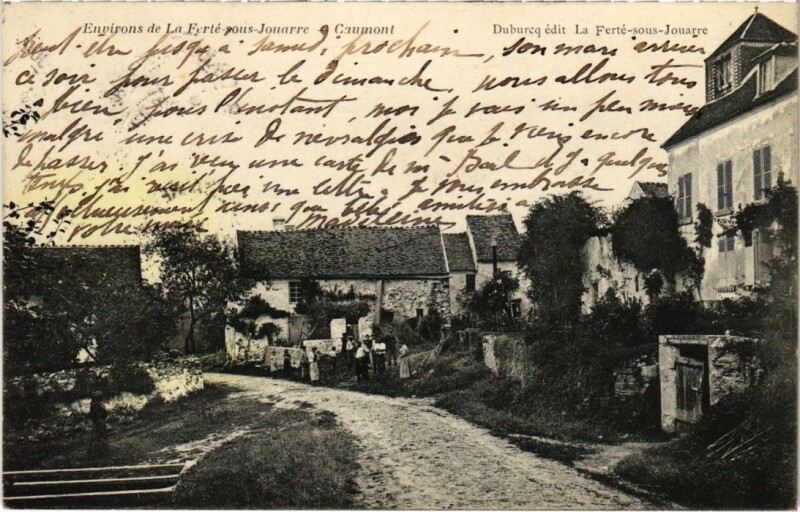 Environs de La Ferté-sous-Jouarre - Caumont
Duburcq édit La Ferté-sous-Jouarre
peut-être jusqu'à samedi prochain, son mari arrive
ce soir pour passer le dimanche, nous allons tous
bien, pour l'instant, moi je vais un peu mieux
malgré une crise de névralgies que je viens encore
de passer. J'ai reçu une carte de Mr il y a quelque
temps, j'ai aussi une lettre je vous embrasse
affectueusement ainsi que amitiés à
votre Madeleine